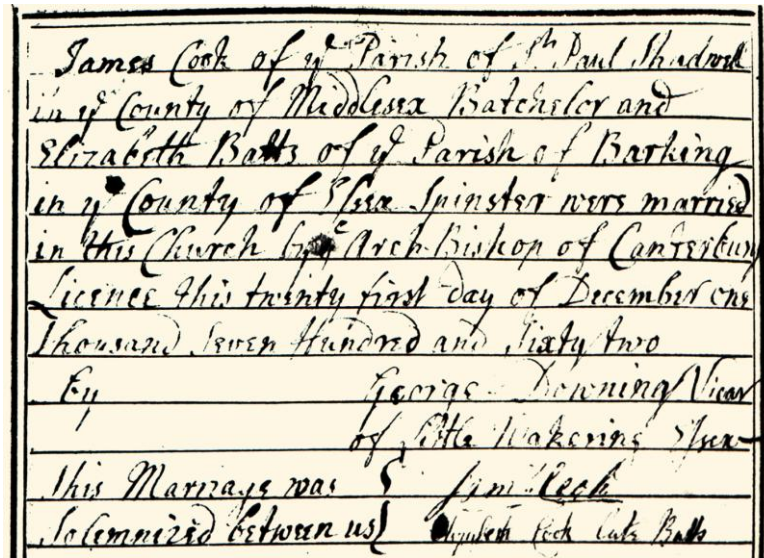 James Cook of ye Parish of St Paul Shadwell
in ye County of Middlesex Batchelor and
Elizabeth Batts of ye Parish of Barking
in ye County of Essex Spinster were married
in this Church by ye Arch-Bishop of Canterbury
Licence this twenty first day of December one
Thousand Seven Hundred and Sixty two
By George Downing Vicar
of Little Wakering Essex
This Marriage was Jams Cook
Solemnized between us Elizabeth Cook late Batts